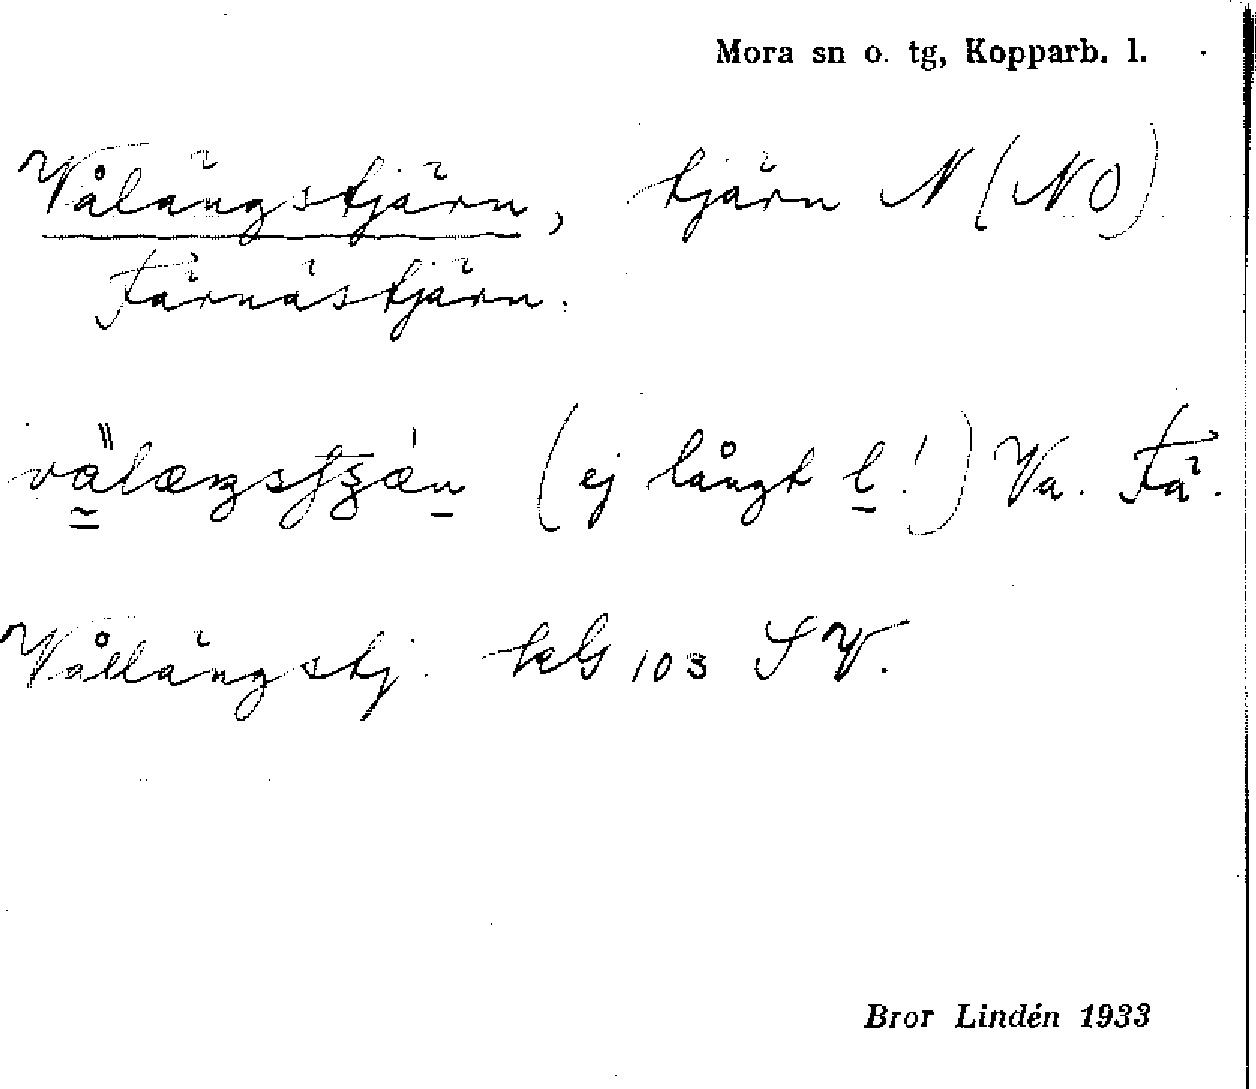 Mora sn o. tg, Kopparb. l.
Vålängstjärn, tjärn N (NO)
Färnästjärn.
(ej långt l!) Va. Fä.
Vållängstj. kbl 103 SV.
Bror Lindén 1933